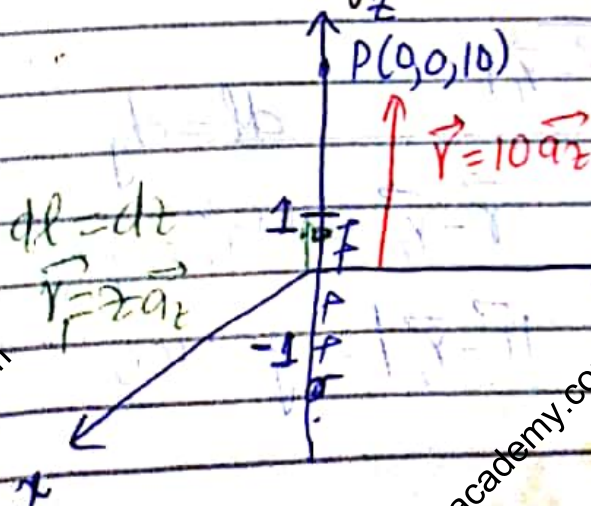 z
P(0,0,10)
r = 10 az
dl = dz
1
r1 = z az
-1
x
academy.co